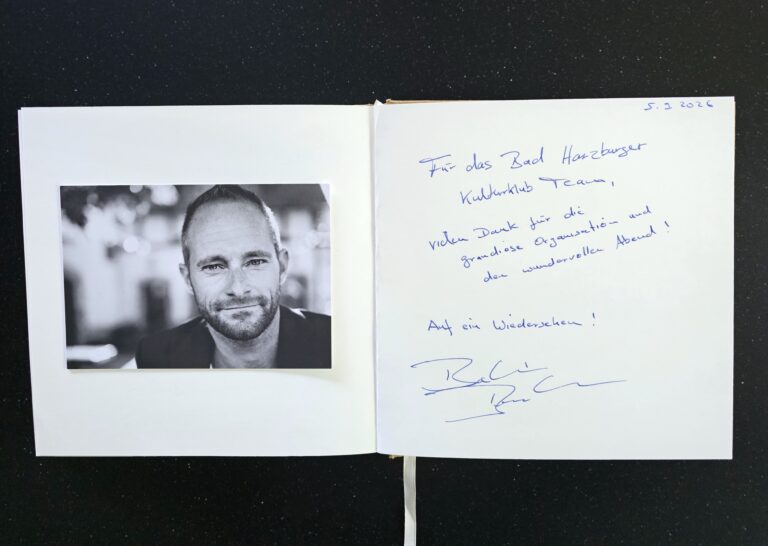 5.2 2026
Für das Bad Harzburger
Kulturklub Team,
vielen Dank für die
grandiose Organisation und
den wundervollen Abend!
Auf ein Wiedersehen!